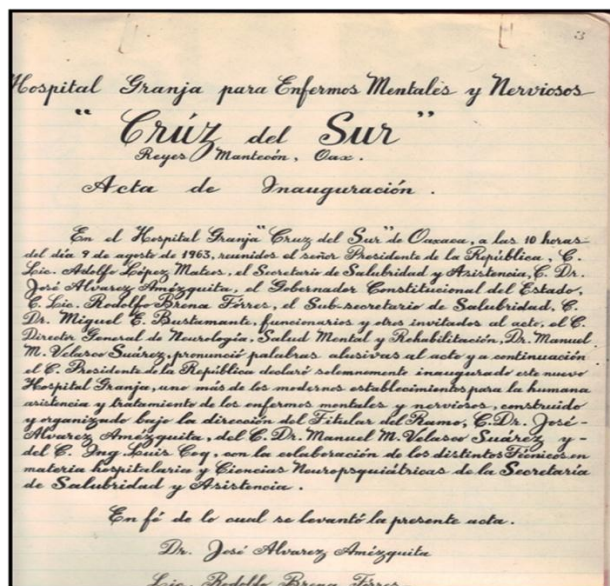 3
Hospital Granja para Enfermos Mentales y Nerviosos
"Crúz del Sur"
Reyes Mantecón, Oax.
Acta de Inauguración.
En el Hospital Granja "Cruz del Sur" de Oaxaca, a las 10 horas
del día 9 de agosto de 1963, reunidos el señor Presidente de la República, C.
Lic. Adolfo López Mateos, el Secretario de Salubridad y Asistencia, C. Dr.
José Alvarez Amézquita, el Gobernador Constitucional del Estado,
C. Lic. Rodolfo Brena Tórres, el Sub-secretario de Salubridad, C.
Dr. Miguel E. Bustamante, funcionarios y otros invitados al acto, el C.
Director General de Neurología, Salud Mental y Rehabilitación, Dr. Manuel
M. Velasco Suárez, pronunció palabras alusivas al acto y a continuación
el C. Presidente de la República declaró solemnemente inaugurado este nuevo
Hospital Granja, uno más de los modernos establecimientos para la humana
asistencia y tratamiento de los enfermos mentales y nerviosos, construido
y organizado bajo la dirección del Titular del Ramo, C. Dr. José-
Alvarez Amézquita, del C. Dr. Manuel M. Velasco Suárez y-
del C. Ing. Luis Coq, con la colaboración de los distintos Técnicos en
materia hospitalaria y Ciencias Neuropsiquiátricas de la Secretaría
de Salubridad y Asistencia.
En fé de lo cual se levantó la presente acta.
Dr. José Alvarez Amézquita
Lic. Rodolfo Brena Tórres